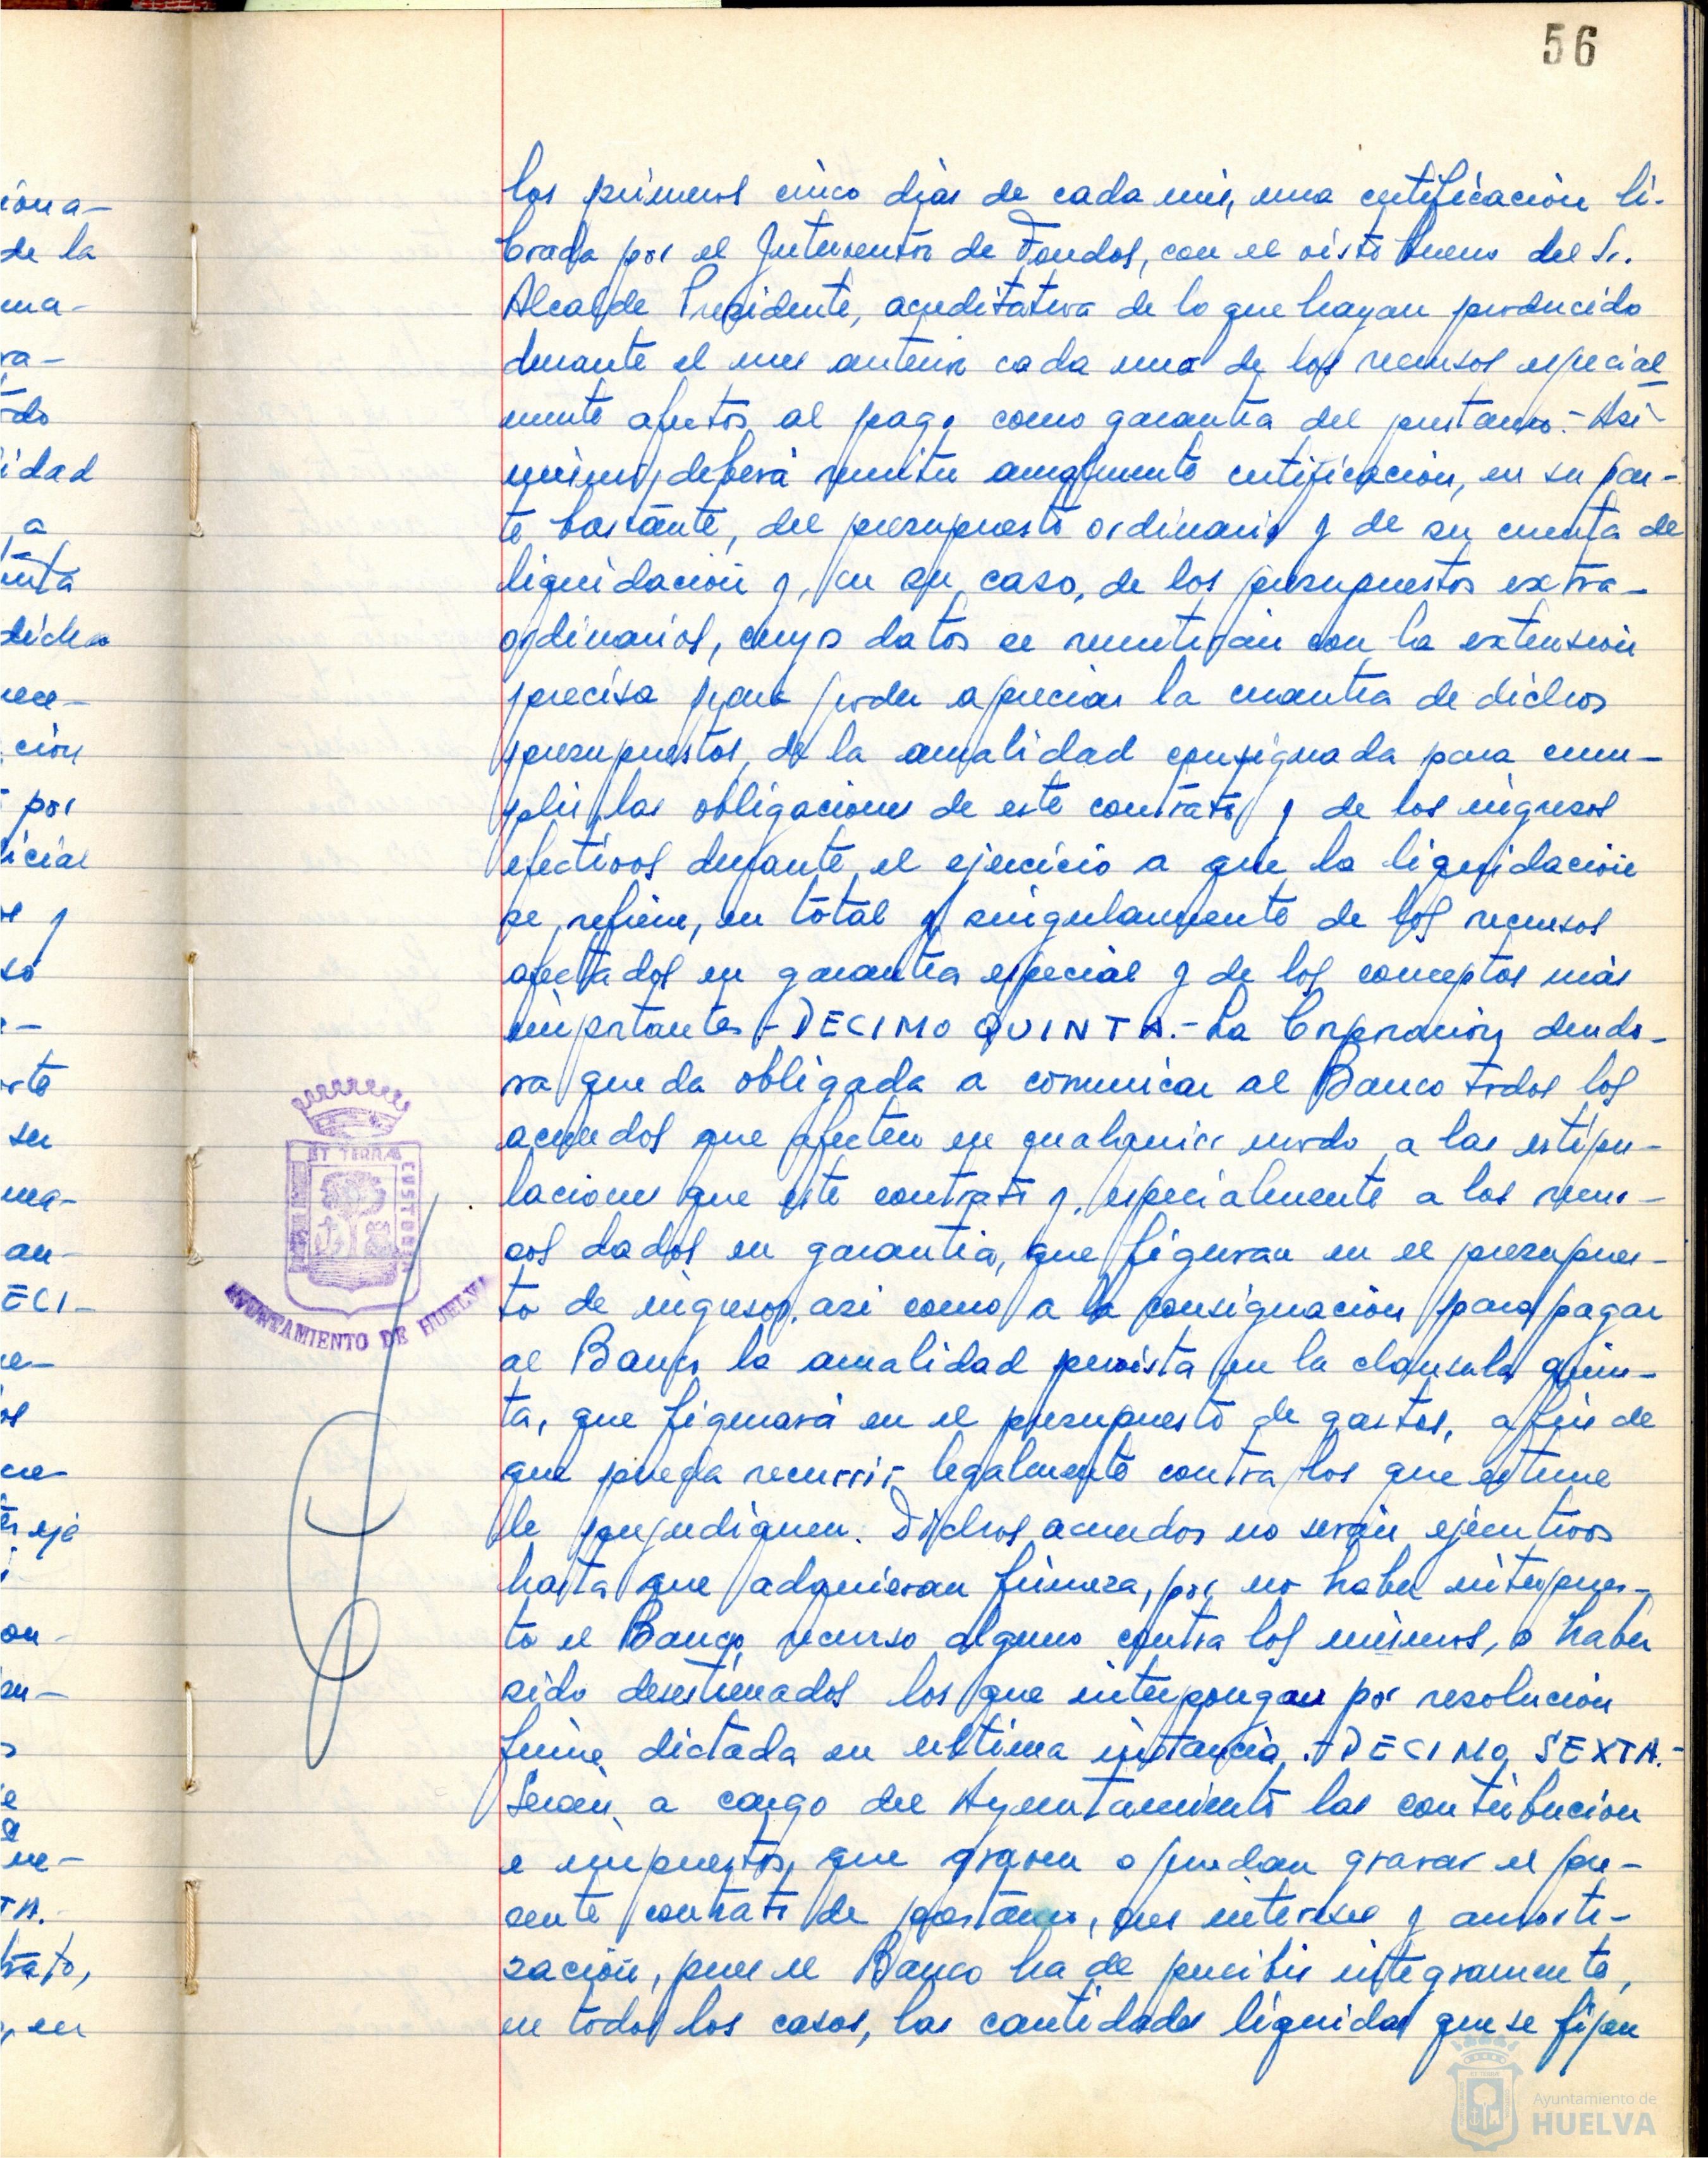 56
los primeros cinco dias de cada mes, una certificación li-
brada por el Interventor de Fondos, con el visto bueno del Sr.
Alcalde Presidente, acreditativa de lo que hayan producido
durante el mes anterior cada uno de los recursos especial
mente afectos al pago como garantia del prestamo.- Asi-
mismo, deberá remitir anualmente certificación, en su par-
te bastante, del presupuesto ordinario y de su cuenta de
liquidación y, en su caso, de los presupuestos extra-
ordinarios, cuyos datos se remitirán con la extensión
precisa para poder apreciar la cuantia de dichos
presupuestos, de la anualidad consignada para cum-
plir las obligaciones de este contrato y de los ingresos
efectivos durante el ejercicio a que la liquidación
se refiere, en total y singularmente de los recursos
afectados en garantia especial y de los conceptos más
importantes.- DECIMO QUINTA.- La Corporación deudo-
ra queda obligada a comunicar al Banco todos los
acuerdos que afecten en cualquier modo a las estipu-
laciones que este contrato y, especialmente a los recur-
sos dados en garantia, que figuran en el presupues-
to de ingresos, asi como a la consignación para pagar
al Banco la anualidad prevista en la clausula quin-
ta, que figurará en el presupuesto de gastos, a fin de
que pueda recurrir legalmente contra los que estime
le perjudiquen. Dichos acuerdos no serán ejecutivos
hasta que adquieran firmeza, por no haber interpues-
to el Banco recurso alguno contra los mismos, o haber
sido desestimados los que interpongan por resolución
firme dictada en ultima instancia.- DECIMO SEXTA.-
Serán a cargo del Ayuntamiento las contribucion
e impuestos, que graven o puedan gravar el pre-
sente contrato de prestamo, sus intereses y amorti-
zación, pues el Banco ha de percibir integramente,
en todos los casos, las cantidades liquidas que se fijan
iona-
de la
ma-
ra-
do
idad
a
enta
dicha
rece-
ción
por
icial
y
so
rte
su
ma-
an-
ECI-
os
eje
on-
TA.
en
ET TERRAE CUSTODIA
AYUNTAMIENTO DE HUELVA
Ayuntamiento de
HUELVA